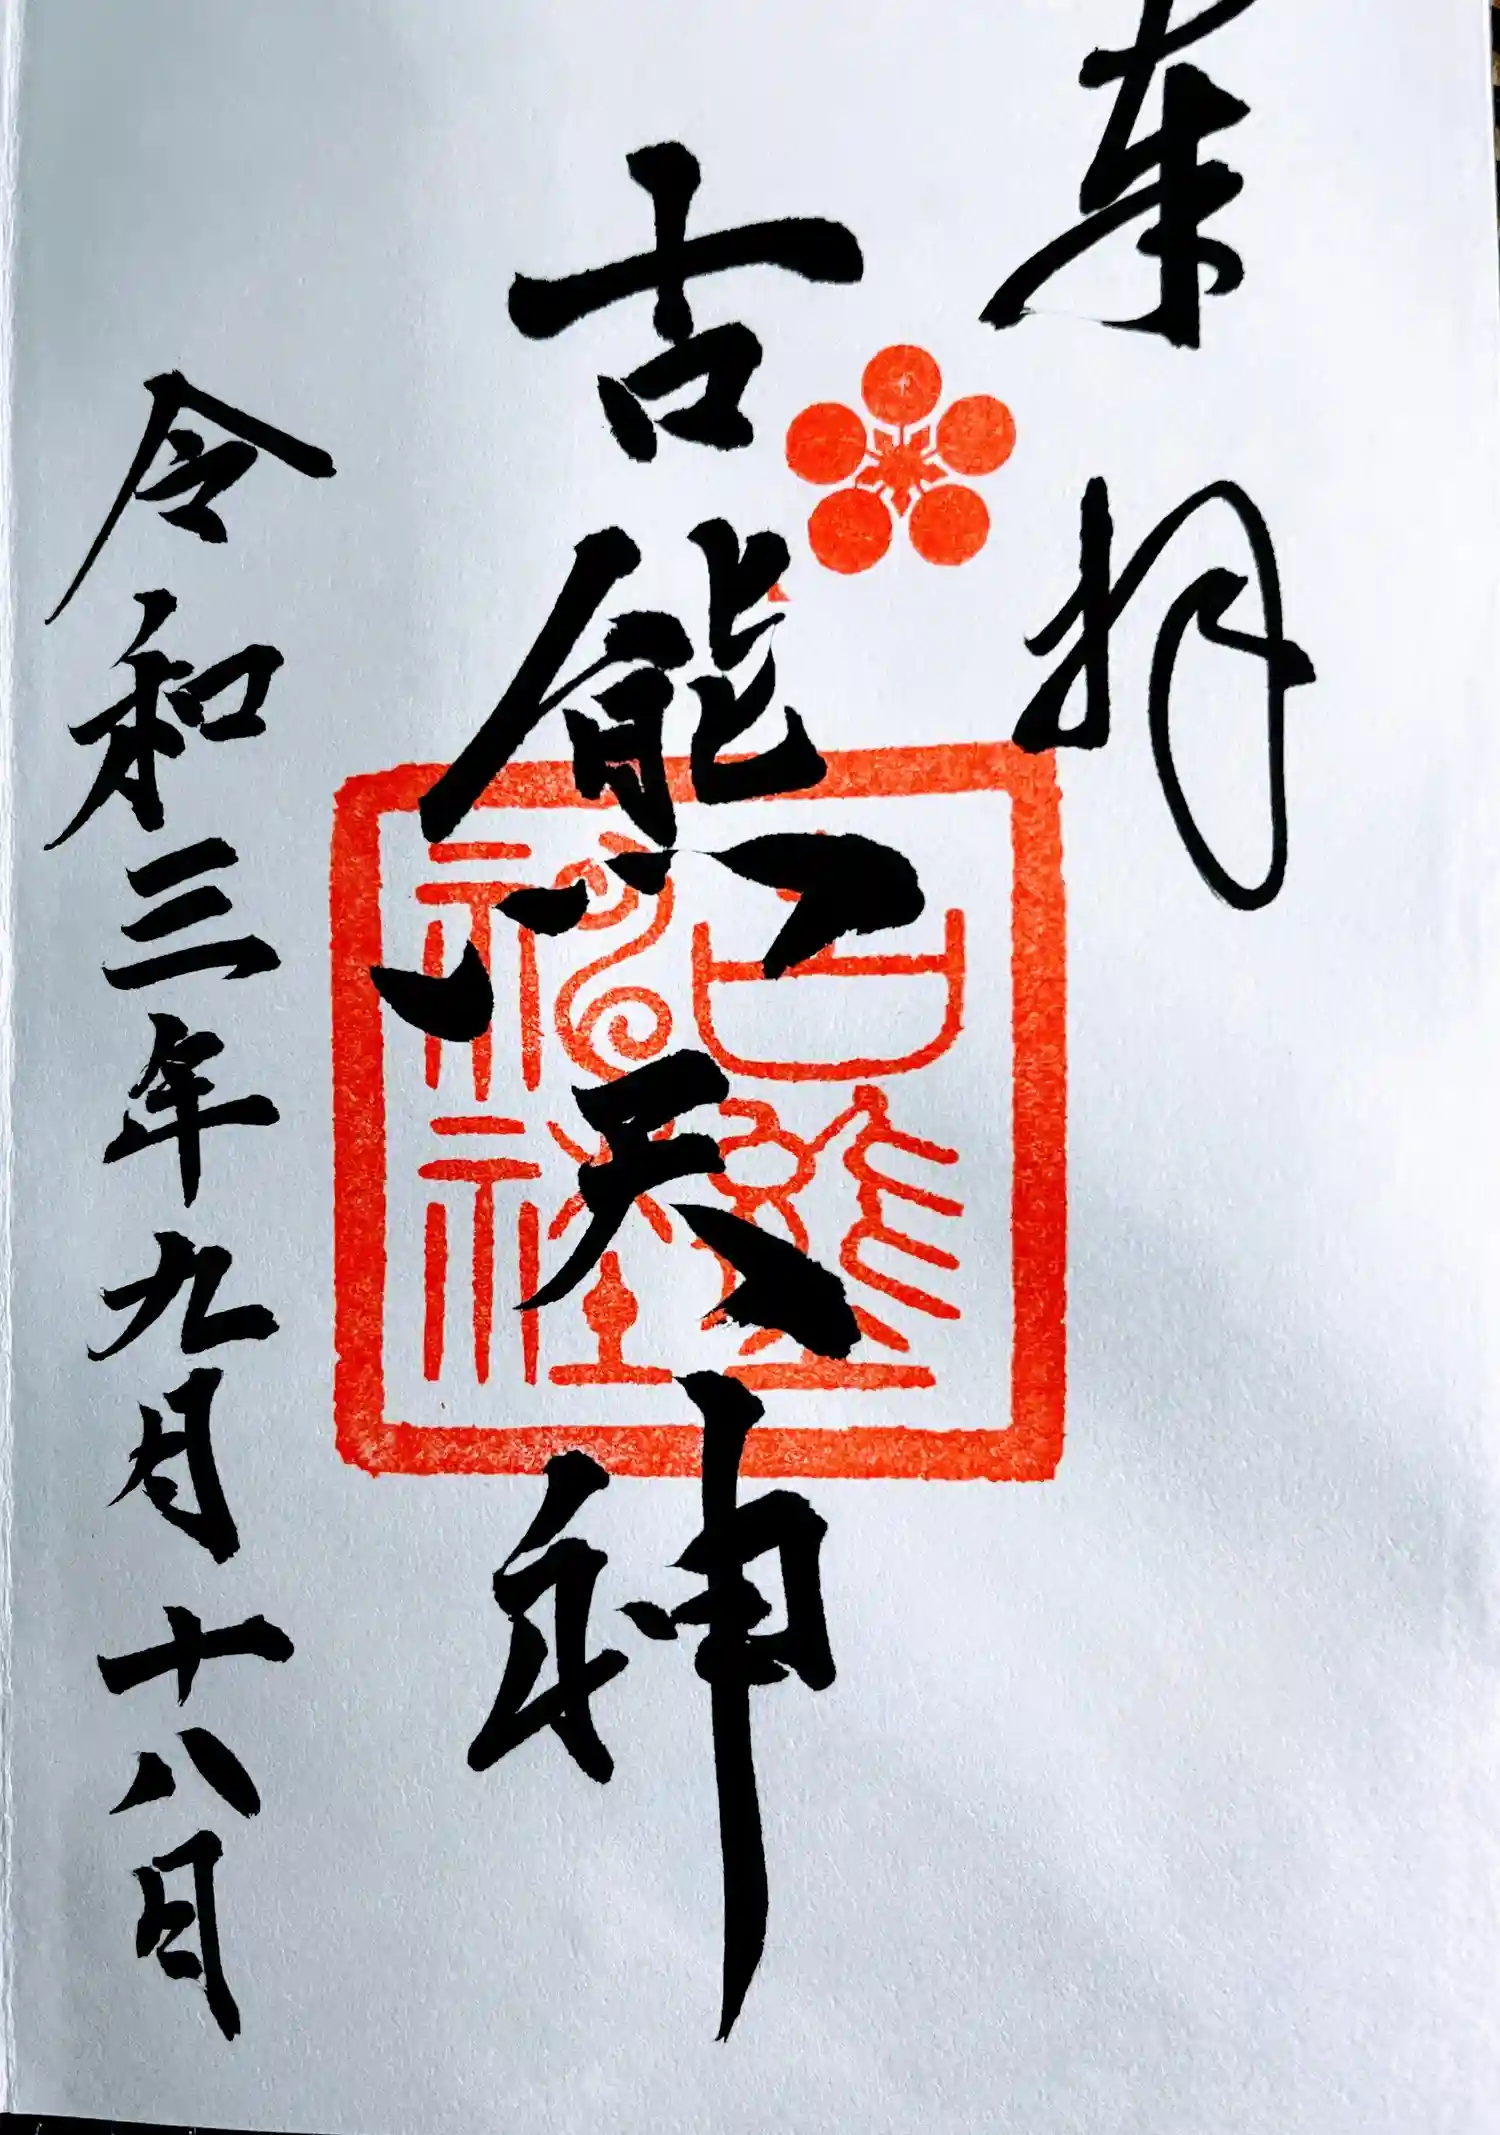 奉拝
古熊天神
古熊神社
令和三年九月十八日